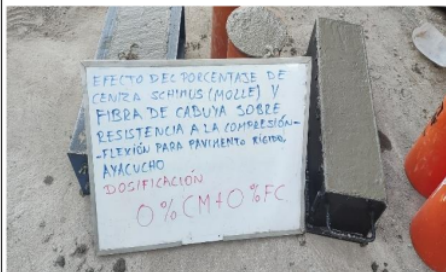 EFECTO DEL PORCENTAJE DE
CENIZA SCHINUS (MOLLE) Y
FIBRA DE CABUYA SOBRE
RESISTENCIA A LA COMPRESIÓN-
-FLEXIÓN PARA PAVIMENTO RÍGIDO,
AYACUCHO
DOSIFICACIÓN
0 % CM + 0 % FC